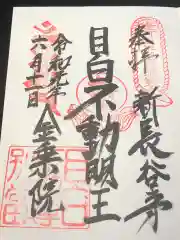 奉拝
新長谷寺
目白不動明王
令和元年
六月十一日
金乗院